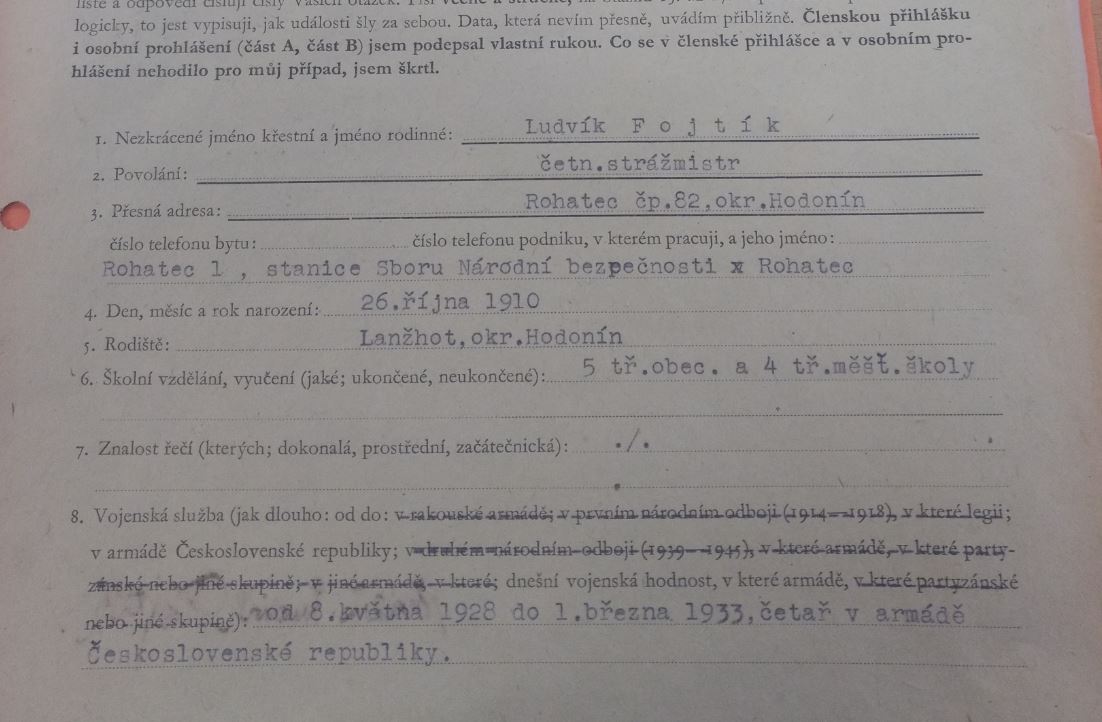 liště a odpovědi čísluji čísly Vašich otázek. Píši věcně a stručně,
logicky, to jest vypisuji, jak události šly za sebou. Data, která nevím přesně, uvádím přibližně. Členskou přihlášku
i osobní prohlášení (část A, část B) jsem podepsal vlastní rukou. Co se v členské přihlášce a v osobním pro-
hlášení nehodilo pro můj případ, jsem škrtl.
1. Nezkrácené jméno křestní a jméno rodinné: Ludvík F o j t í k
2. Povolání: četn.strážmistr
3. Přesná adresa: Rohatec čp.82,okr.Hodonín
číslo telefonu bytu: číslo telefonu podniku, v kterém pracuji, a jeho jméno:
Rohatec 1 , stanice Sboru Národní bezpečnosti x Rohatec
4. Den, měsíc a rok narození: 26.října 1910
5. Rodiště: Lanžhot,okr.Hodonín
6. Školní vzdělání, vyučení (jaké; ukončené, neukončené): 5 tř.obec. a 4 tř.měšť.školy
7. Znalost řečí (kterých; dokonalá, prostřední, začátečnická): ./.
8. Vojenská služba (jak dlouho: od do: v rakouské armádě; v prvním národním odboji (1914—1918), v které legii;
v armádě Československé republiky; v druhém národním odboji (1939—1945), v které armádě, v které party-
zánské nebo jiné skupině; v jiné armádě, v které; dnešní vojenská hodnost, v které armádě, v které partyzánské
nebo jiné skupině): od 8.května 1928 do 1.března 1933,četař v armádě
Československé republiky.